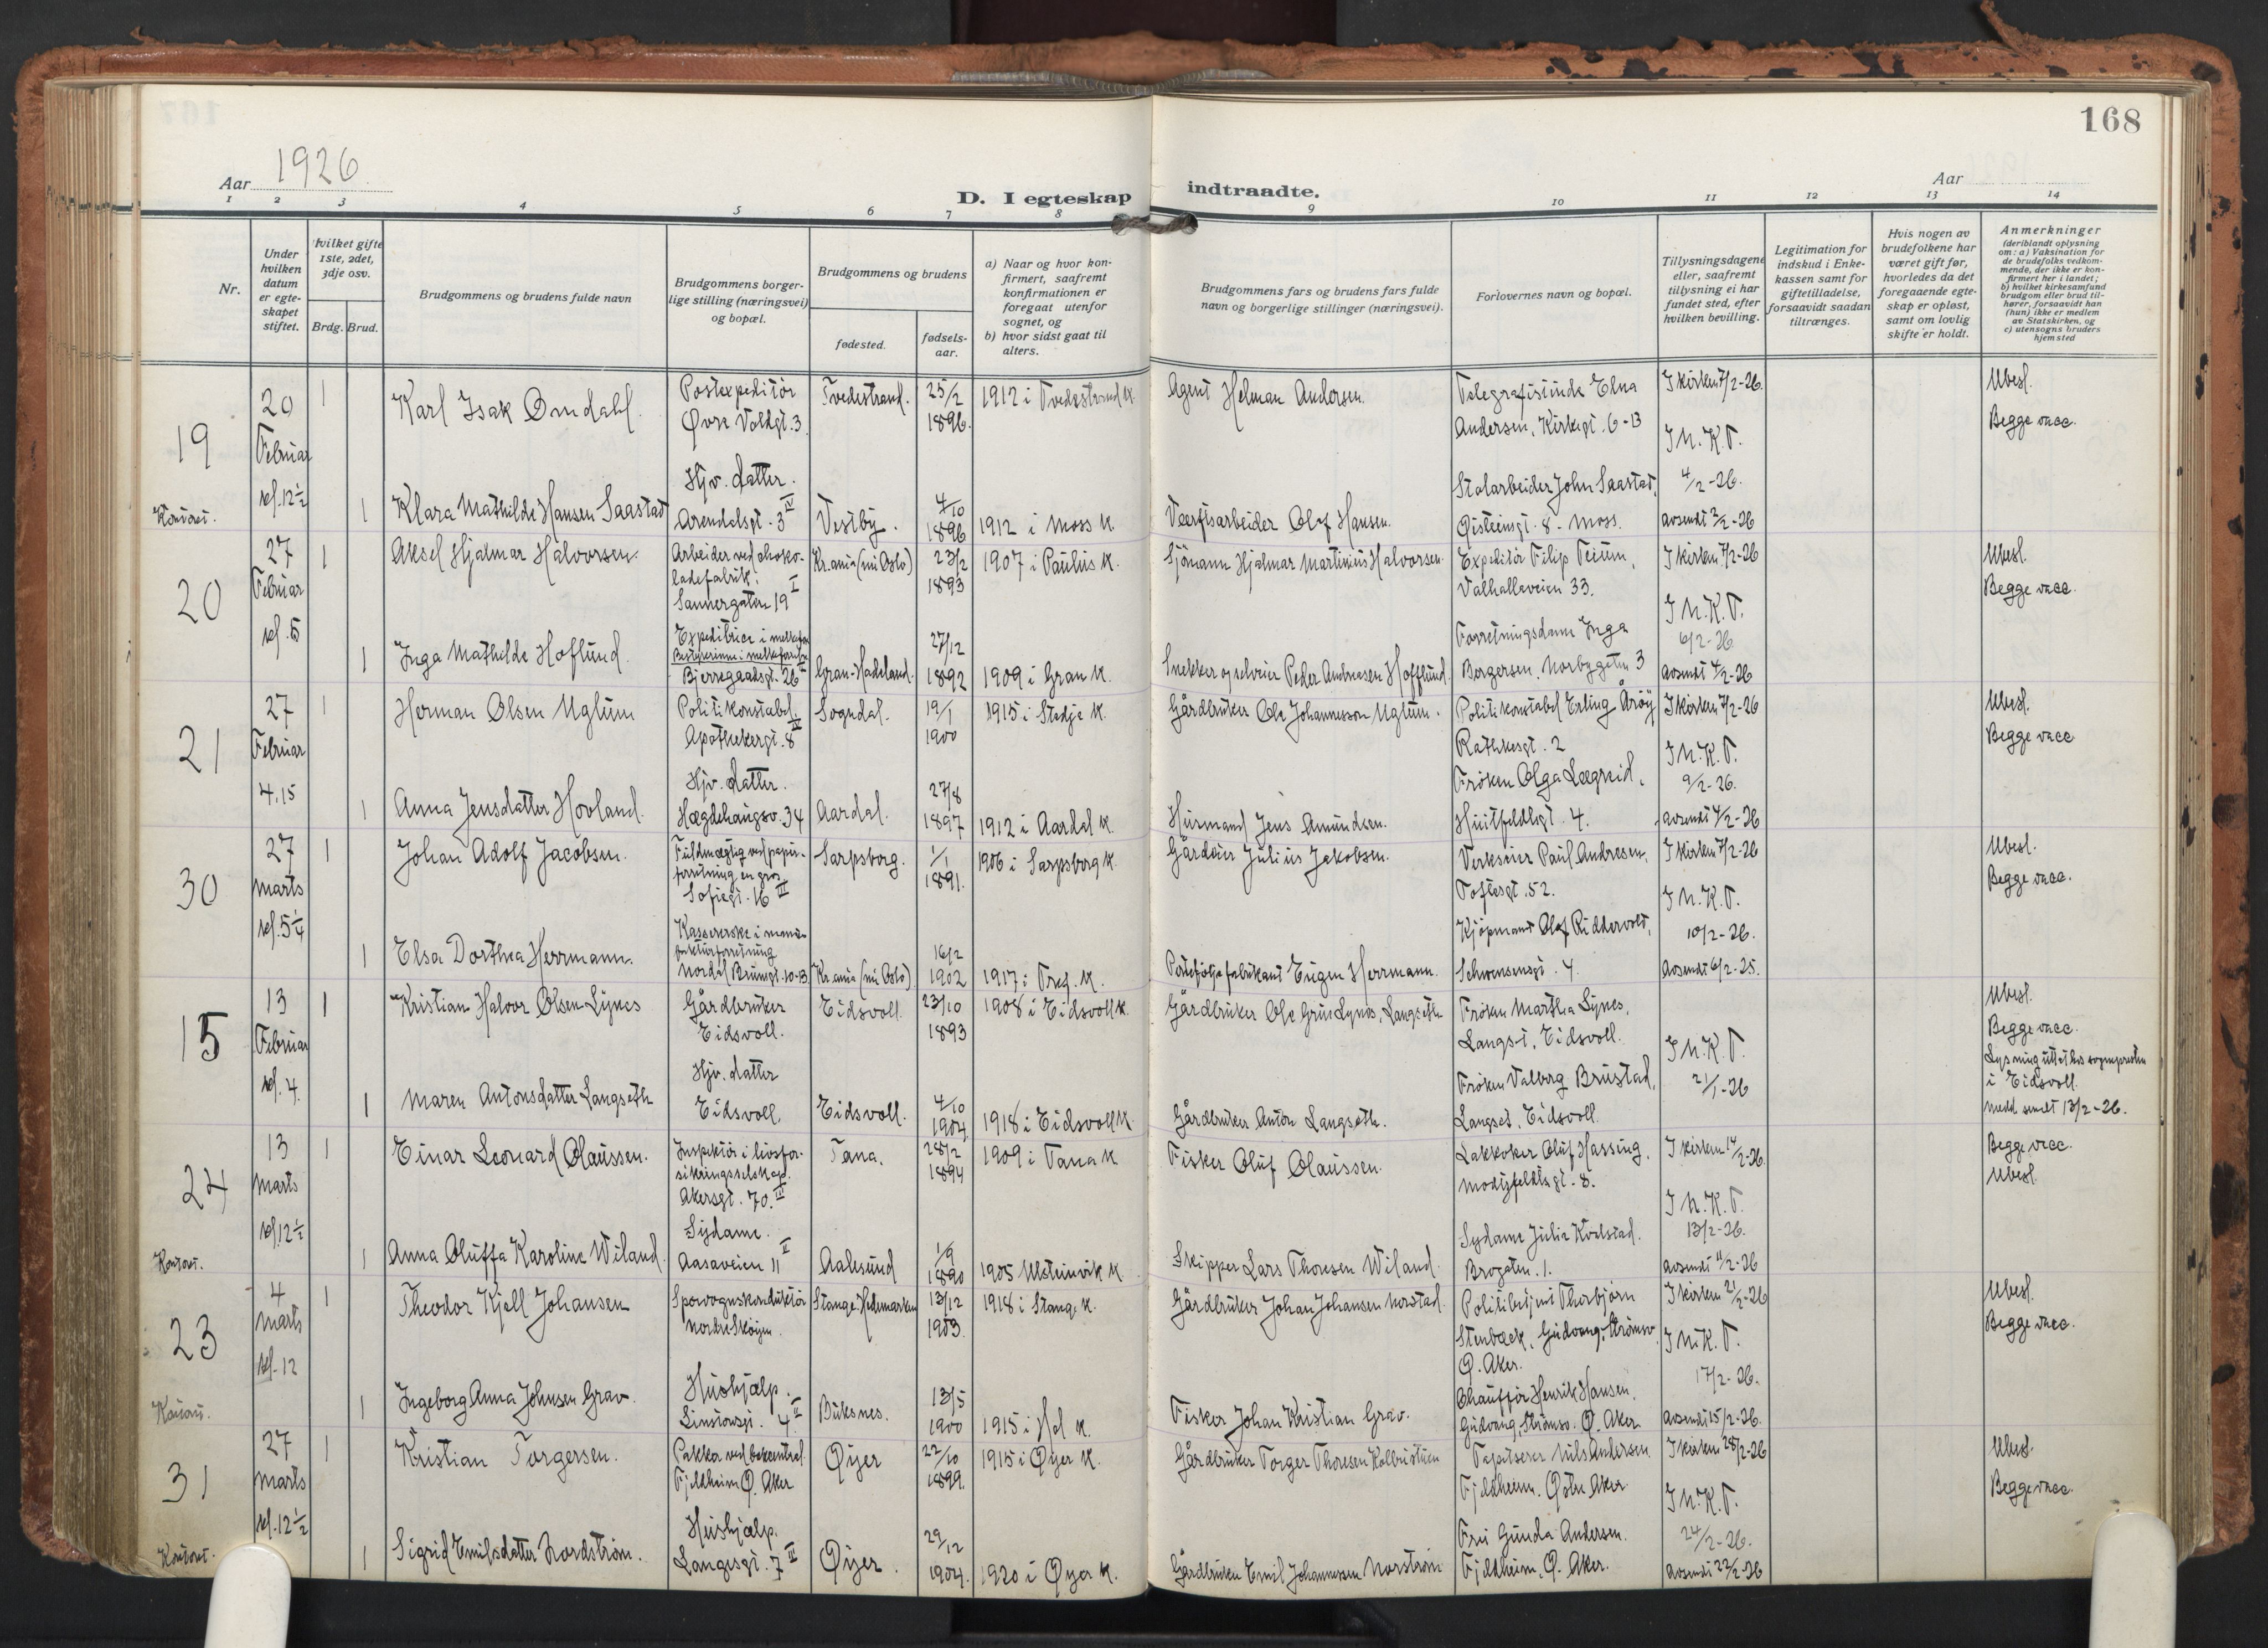 168
Aar 1926.
Aar
D. I egteskap indtraadte.
1 2 3 4 5 6 7 8 9 10 11 12 13 14
Nr.
Under hvilken datum er egteskapet stiftet.
Hvilket gifte 1ste, 2det, 3dje osv.
Brdg. Brud.
Brudgommens og brudens fulde navn
Brudgommens borgerlige stilling (næringsvei) og bopæl.
Brudgommens og brudens
fødested.
fødselsaar.
a) Naar og hvor konfirmert, saafremt konfirmationen er foregaat utenfor sognet, og
b) hvor sidst gaat til alters.
Brudgommens fars og brudens fars fulde navn og borgerlige stillinger (næringsvei).
Forlovernes navn og bopæl.
Tillysningsdagene eller, saafremt tillysning ei har fundet sted, efter hvilken bevilling.
Legitimation for indskud i Enkekassen samt for giftetilladelse, forsaavidt saadan tiltrænges.
Hvis nogen av brudefolkene har været gift før, hvorledes da det foregaaende egteskap er opløst, samt om lovlig skifte er holdt.
Anmerkninger
(deriblandt oplysning om: a) Vaksination for de brudefolks vedkommende, der ikke er konfirmert her i landet; b) hvilket kirkesamfund brudgom eller brud tilhører, forsaavidt han (hun) ikke er medlem av Statskirken, og c) utensogns bruders hjemsted
19
20 Februar kl. 12½
Kontoret.
1 Karl Isak Omdahl Postexpeditør Øvre Voldgt. 3 Tvedestrand. 25/2 1896. 1912 i Tvedestrand k. Agent Helman Andersen. Telegrafistinde Elna Andersen, Kirkegt. 6-13 I kirken 7/2-26. I M.K.T. 4/2-26. Ubesl. Begge vacc.
1 Klara Mathilde Hansen Saastad Hjv. datter. Arendalsgt. 3 IV Vestby. 4/10 1896 1912 i Moss k. Værftsarbeider Olaf Hansen. Stolarbeider John Saastad, Øisteinsgt. 8 - Moss. avsendt 2/2-26
20
27 Februar kl. 5
1 Aksel Hjalmar Halvorsen. Arbeider ved chokoladefabrik. Sannergaten 19 I Kr.ania (nu Oslo) 23/2 1893 1907 i Paulus k. Sjømann Hjalmar Martinius Halvorsen. Expeditør Filip Teium, Valhallaveien 33. I kirken 7/2-26 I M.K.T. 6/2-26. Ubesl. Begge vacc.
1 Inga Mathilde Hoflund. Expeditrice i melkefor. Bestyrerinne i melkeforretn. Bjerregaardsgt. 26 Gran-Hadeland. 27/12 1892 1909 i Gran k. Snekker og selveier Peder Andreasen Hofflund. Forretningsdame Inga Borgersen, Norbygaten 3 avsendt 4/2-26
21
27 Februar 4.15
1 Herman Olsen Uglum Politikonstabel, Apothekergt. 8 IV Sogndal. 19/1 1900 1915 i Stedje k. Gårdbruker Ole Johannesson Uglum. Politikonstabel Erling Årøy Rathkesgt. 2 I kirken 7/2-26 I M.K.T. 9/2-26. Ubesl. Begge vacc
1 Anna Jensdatter Hovland. Hjv. datter. Hægdehaugsv. 34 Aardal. 27/8 1897 1912 i Aardal k. Husmand Jens Amundsen. Frøken Olga Lægreid, Huitfeldtsgt. 4. avsendt 4/2-26
30
27 Marts kl. 5¼
1 Johan Adolf Jacobsen. Fuldmægtig ved papirforretning en gros Sofiegt. 16 III Sarpsborg. 1/1 1891. 1906 i Sarpsborg k. Gårdeier Julius Jakobsen. Verkseier Paul Andresen, Toftesgt. 52. I kirken 7/2-26 I M.K.T. 10/2-26. Ubesl. Begge vacc.
1 Elsa Dorthea Herrmann. Kassererske i manufakturforretning Nordal Brunsgt. 10-13 Kr.ania (nu Oslo) 16/2 1902 1917 i Tref. k. Portefølje fabrikant Eugen Herrmann. Kjøpmand Olaf Riddervold, Schwensensgt. 4. avsendt 6/2-25.
15
13 Februar kl. 4.
1 Kristian Halvor Olsen Lynes Gårdbruker Eidsvoll. Eidsvoll. 23/10 1893 1908 i Eidsvoll k. Gårdbruker Ole Grue Lynes, Langseth Frøken Marthea Lynes, Langset, Eidsvoll. I M.K.T. 21/1-26 Ubesl. Begge vacc. Lysning utt. hos sognepresten i Eidsvoll. medd. sendt 13/2-26.
1 Maren Antonsdatter Langseth Hjv. datter Eidsvoll, Eidsvoll. 4/10 1904. 1918 i Eidsvoll k. Gårdbruker Anton Langseth. Frøken Valborg Brustad, Langset, Eidsvoll.
24
13 Marts kl. 12½
Kontoret.
1 Einar Leonard Olaussen. Inspektør i livsforsikringsselskap. Akersgt. 70. III Tana. 28/2 1894 1909 i Tana k Fisker Oluf Olaussen. Lakkoker Oluf Hassing, Motzfeldtsgt. 8. I kirken 14/2-26. I M.K.T. 13/2-26. Begge vacc. Ubesl.
1 Anna Oluffa Karoline Wiland. Sydame. Aasaveien 11 II Aalesund 1/9 1890 1905 Ulsteinvik k. Skipper Lars Thoresen Wiland. Sydame Julie Kvelstad. Brogaten. 1. avsendt 11/2-26
23
4 Marts kl. 12
Kontoret.
1 Theodor Kjell Johansen Sporvognskonduktør Nordre Skøyen. Stange. Hedemarken 13/12 1903. 1918 i Stange k. Gårdbruker Johan Johansen Norstad. Politibetjent Thorbjørn Stenbæck, Gudvang, Strømsv. Ø. Aker. I kirken 21/2-26 I M.K.T. 17/2-26. Ubesl. Begge vacc.
1 Ingeborg Anna Johnsen Grav. Hushjælp. Linstowsgt. 4 II Buksnes. 13/5 1900 1915 i Hol k. Fisker Johan Kristian Grav. Chauffør Henrik Hansen. Gudvang, Strømsv. Ø. Aker. avsendt 15/2-26.
31
27 Marts kl. 12½
Kontoret.
1 Kristian Torgersen. Pakker ved bokcentral Fjeldheim Ø. Aker Øyer 22/10 1899. 1915 i Øyer k. Gårdbruker Torger Thoresen Kolbustuen Tapetserer Nils Andersen. Fjeldheim, Østre Aker. I kirken 28/2-26 I M.K.T. 24/2-26. Ubesl. Begge vacc.
1 Sigrid Emilsdatter Nordstrøm. Hushjælp. Langesgt. 7 III Øyer. 29/12 1904. 1920 i Øyer k. Gårdbruker Emil Johannessen Norstrøm Fru Gunda Andersen. Fjeldheim, Ø. Aker. avsendt 22/2-26